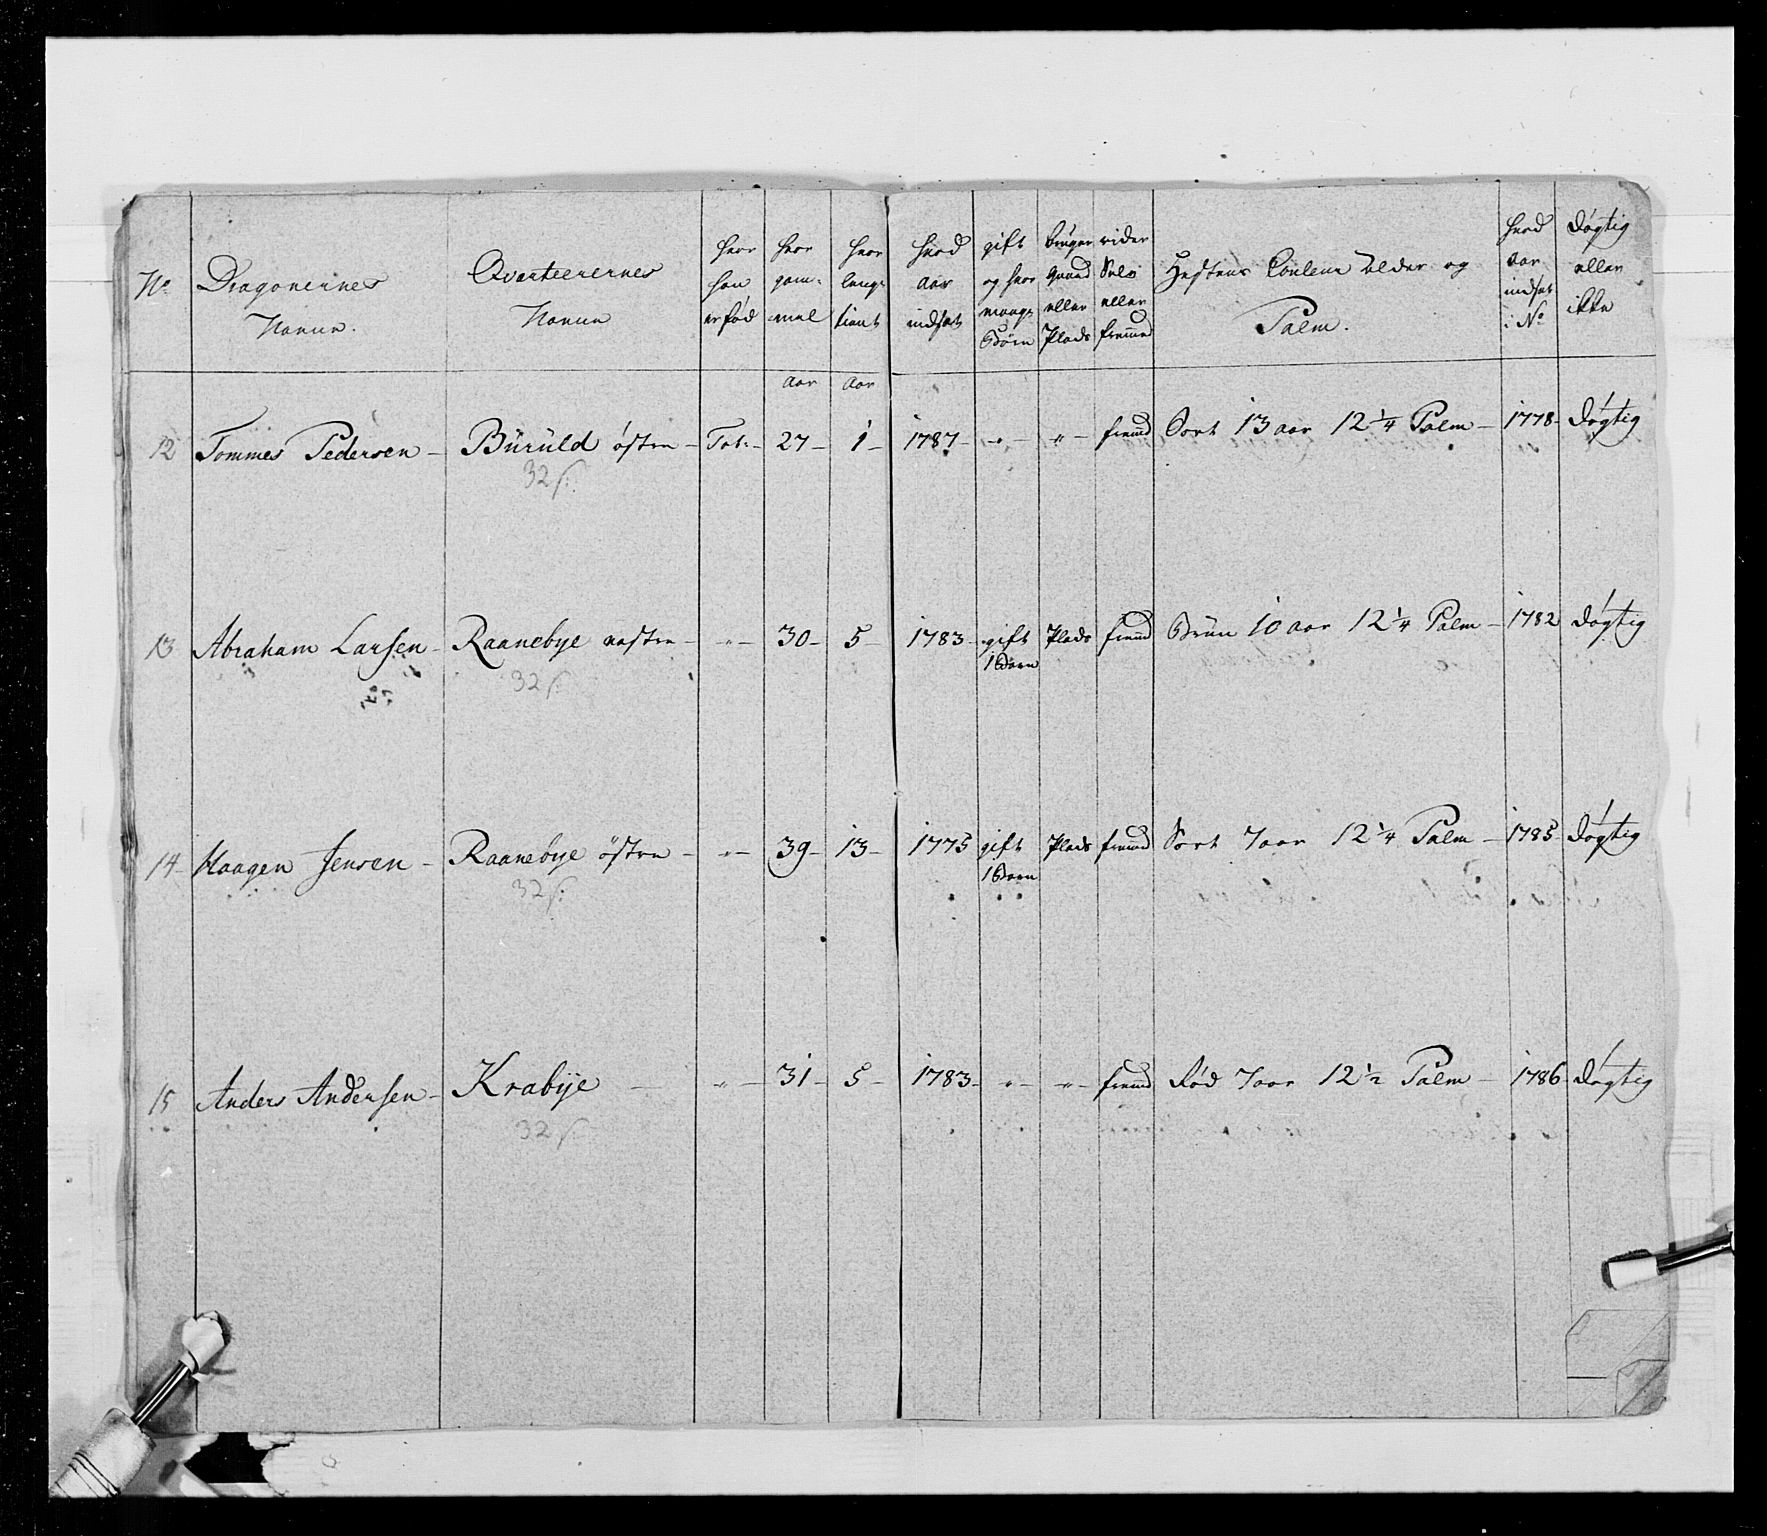 No. | Dragonernes Navne. | Qvarteerernes Navne | hvor han er fød | hvor gam- mel | hvor lenge tient | hvad aar indsat | gift og hvor mange Børn | bruger gaard eller Plads | rider Selv eller fremmed | Hestens Couleur Alder og Palm. | hvad aar indsat i No | dögtig eller ikke
aar | aar
12 | Tommes Pedersen – | Büruld östre – | Tot: – | 27 – | 1 – | 1787 – | " – | " – | fremd | Sort 13 aar 12 1/4 Palm – | 1778 – | dögtig
32 s:
13 | Abraham Larsen – | Raanebye vestre – | " – | 30 – | 5 – | 1783 – | gift 1 Barn | Plads | fremd | Brun 10 aar 12 1/4 Palm – | 1782 | dögtig
32 s:
14 – | Haagen Jensen – | Raanebye östre – | " – | 39 – | 13 – | 1775 | gift 1 Barn | Plads | fremd | Sort 7 aar 12 1/4 Palm – | 1785 – | dögtig
32 s:
15 | Anders Andersen – | Krabye – | " – | 31 – | 5 – | 1783 – | " – | " – | fremd | Rød 7 aar 12 1/2 Palm – | 1786 – | dögtig
32 s: